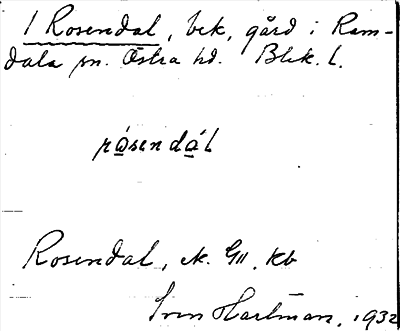 1 Rosendal, bek, gård i Ram-
dala sn. Östra hd. Blek. l.
rósendál
Rosendal, ek. GII. kb
Sven Hartman, 1932